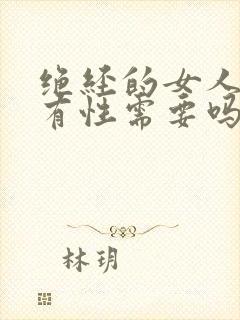 绝经的女人
有性需要吗
林玥